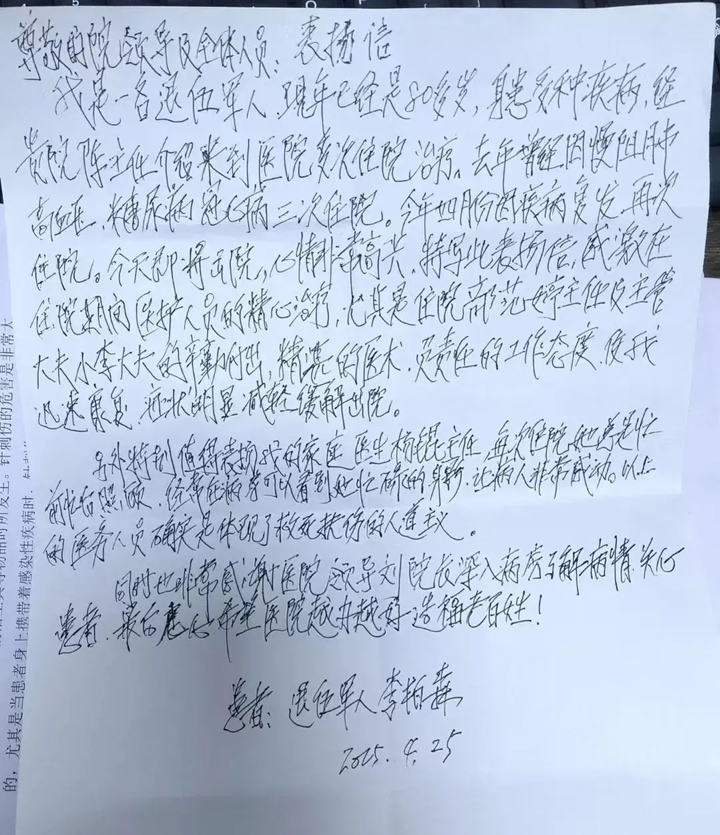 尊敬的院领导及全体人员：表扬信
我是一名退伍军人，现年已经是80多岁，身患多种疾病，经
贵院陈主任介绍来到医院多次住院治疗。去年曾经因慢阻肺
高血压、糖尿病冠心病三次住院。今年四月份因疾病复发，再次
住院。今天即将出院，心情非常高兴，特写此表扬信，感激在
住院期间医护人员的精心治疗，尤其是住院部范婷主任及主管
大夫小李大夫的辛勤付出，精湛的医术，负责任的工作态度，使我
迅速康复，症状明显减轻缓解出院。
另外特别值得表扬我的家庭医生杨锟主任，每次住院她总是忙
前忙后照顾，经常在病房可以看到她忙碌的身影，让病人非常感动。以上
的医务人员确实是体现了救死扶伤的人道主义。
同时也非常感谢医院领导刘院长深入病房了解病情，关心
患者，最后衷心希望医院越办越好造福老百姓！
患者：退伍军人李柏森
2025.4.25
的，尤其是当患者身上携带着感染性疾病时，
时所发生。针刺伤的危害是非常大